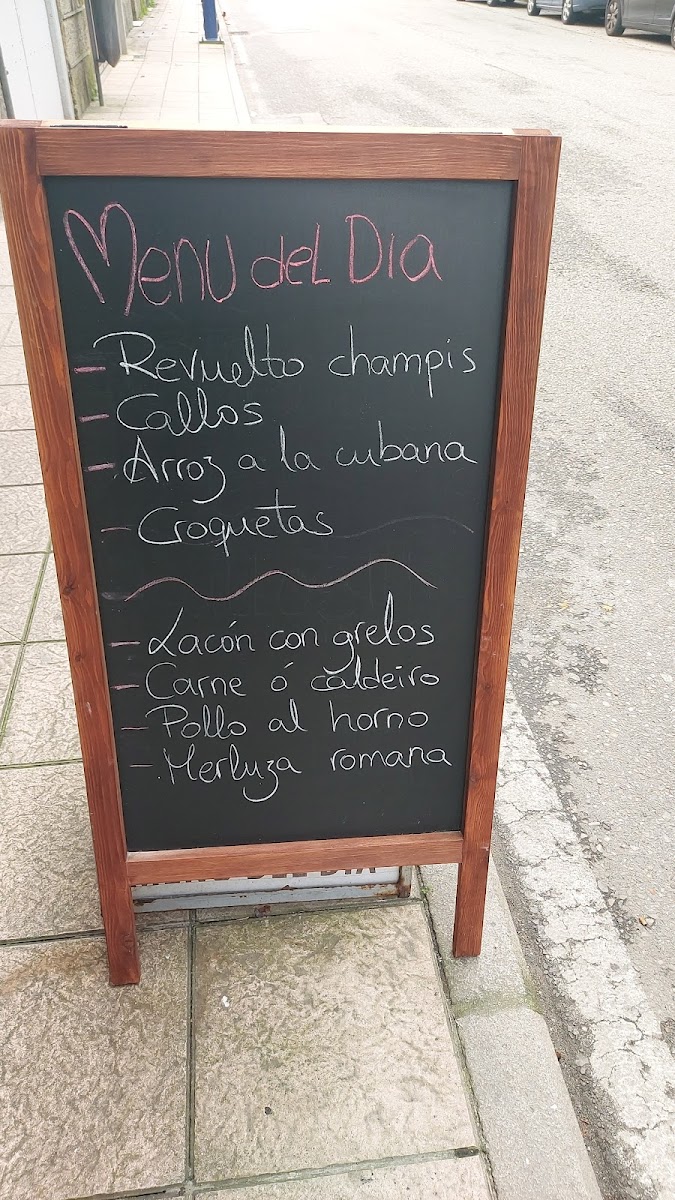 Menu del Dia
- Revuelto champis
- Callos
- Arroz a la cubana
- Croquetas
- Lacón con grelos
- Carne ó caldeiro
- Pollo al horno
- Merluza romana
DEL DIA